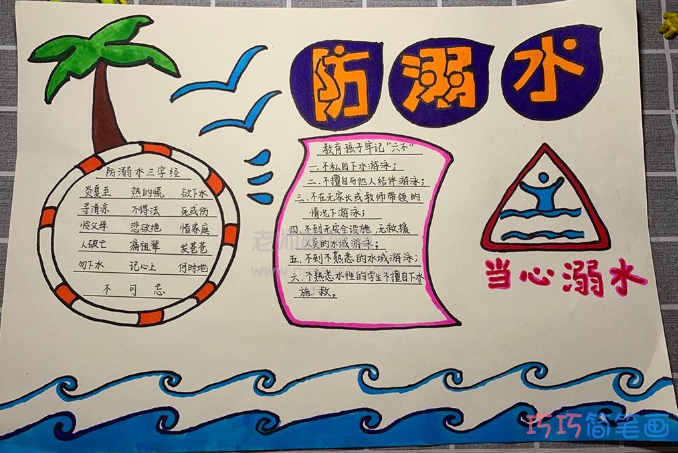 防溺水
防溺水三字经
炎夏至 热的慌 欲下水
寻清凉 不得法 死或伤
惊父母 悲欲绝 惜家庭
人破亡 痛祖辈 发苍苍
勿下水 记心上 何时地
不可忘
教育孩子牢记“六不”
一.不私自下水游泳；
二.不擅自与他人结伴游泳；
三.不在无家长或教师带领的
情况下游泳；
四.不到无安全设施、无救援
人员的水域游泳；
五.不到不熟悉的水域游泳；
六.不熟悉水性的学生不擅自下水
施救。
当心溺水
巧巧简笔画